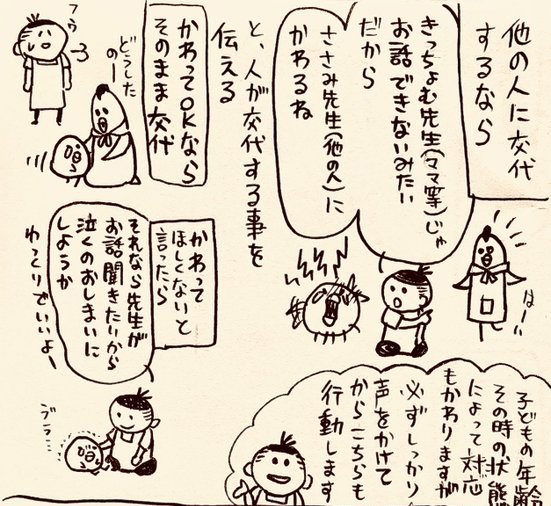 他の人に交代
するなら
きっちょむ先生(ママ等)じゃ
お話できないみたい
だから
ささみ先生(他の人)に
かわるね
と、人が交代する事を
伝える
はーい
かわってOKなら
そのまま交代
どうした
のー
フゥ
かわって
ほしくないと
言ったら
それなら先生が
お話聞きたいから
泣くのおしまいに
しようか
ゆっくりでいいよー
子どもの年齢
その時の状態
によって対応
もかわりますが
必ずしっかり
声をかけて
からこちらも
行動します